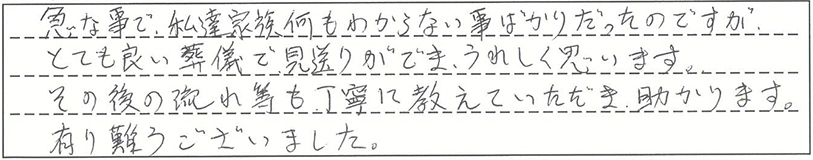 急な事で、私達家族何もわからない事ばかりだったのですが、
とても良い葬儀で見送りができ、うれしく思います。
その後の流れ等も、丁寧に教えていただき、助かります。
有り難うございました。